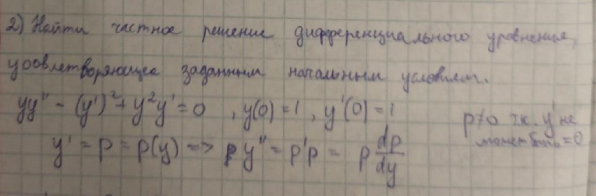 2) Найти частное решение дифференциального уравнения,
удовлетворяющее заданным начальным условиям.
yy'' - (y')² + y²y' = 0 , y(0) = 1 , y'(0) = 1
p≠0 т.к. y' не
может быть = 0
y' = p = p(y) => y'' = p'p = p dp/dy